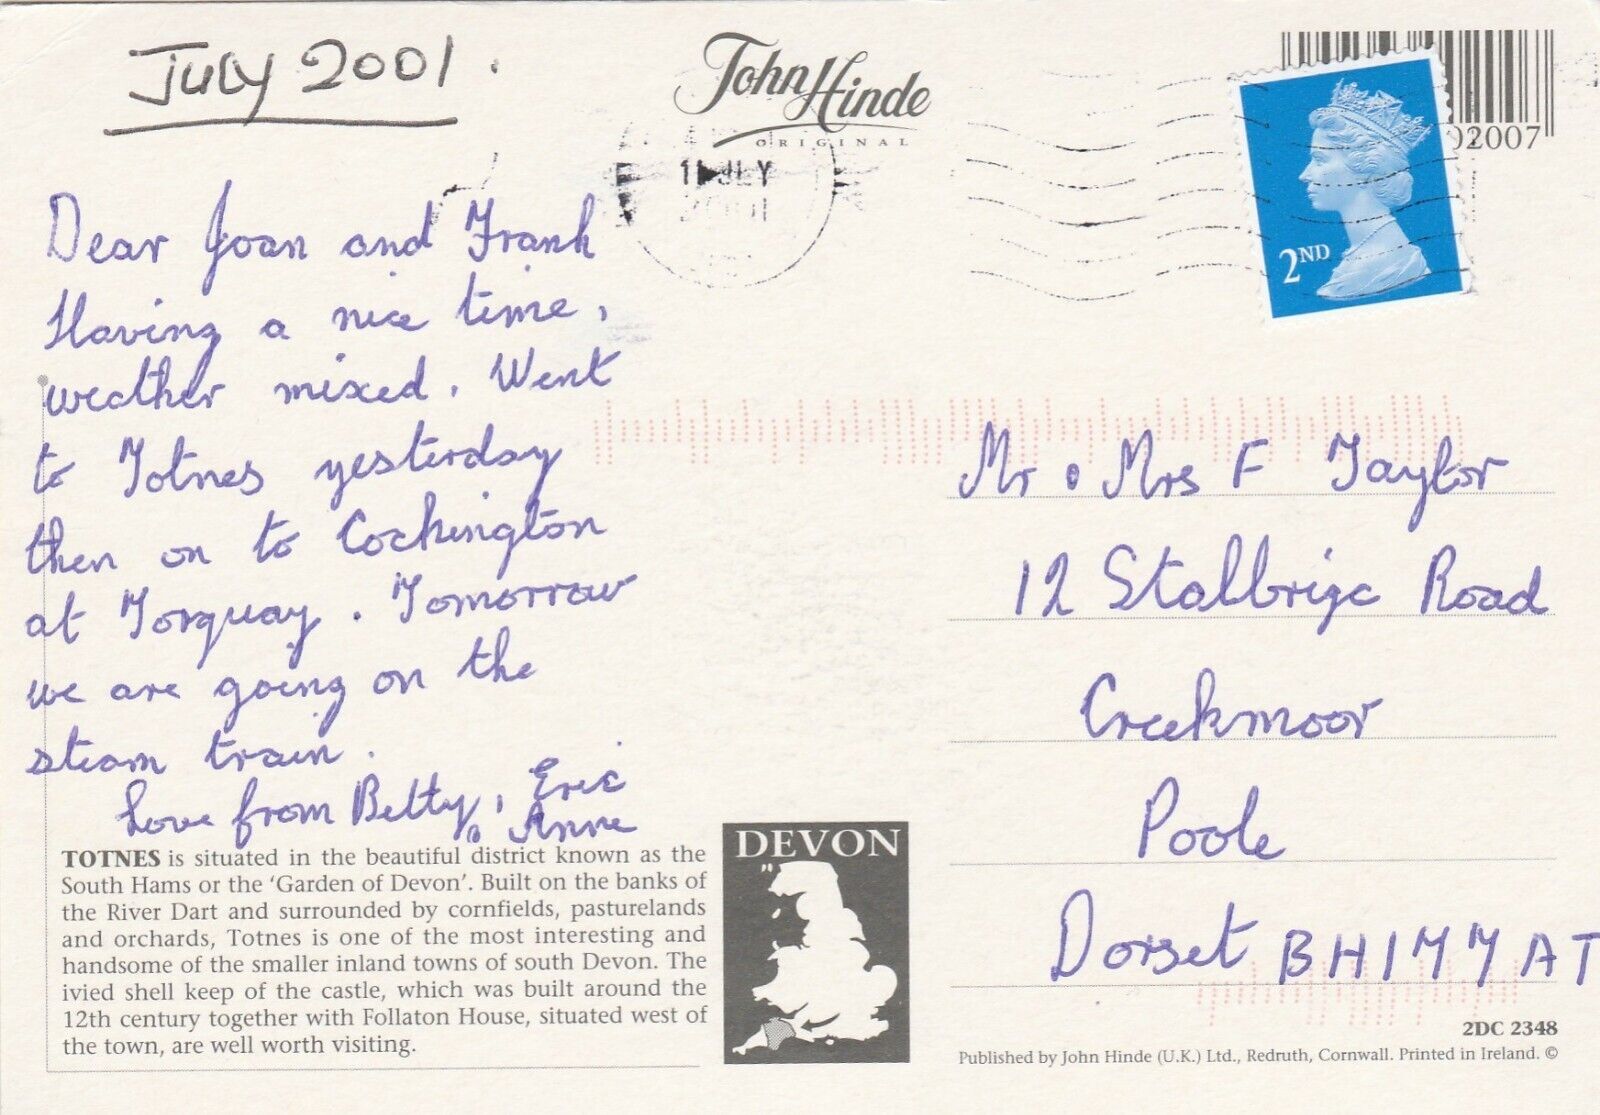 July 2001.
John Hinde
ORIGINAL
11 JLY
2001
2ND
02007
Dear Joan and Frank
Having a nice time,
weather mixed. Went
to Totnes yesterday
then on to Cockington
at Torquay. Tomorrow
we are going on the
steam train.
Love from Betty, Eric
& Anne
Mr & Mrs F Taylor
12 Stalbrige Road
Creekmoor
Poole
Dorset BH17 7AT
TOTNES is situated in the beautiful district known as the
South Hams or the 'Garden of Devon'. Built on the banks of
the River Dart and surrounded by cornfields, pasturelands
and orchards, Totnes is one of the most interesting and
handsome of the smaller inland towns of south Devon. The
ivied shell keep of the castle, which was built around the
12th century together with Follaton House, situated west of
the town, are well worth visiting.
DEVON
2DC 2348
Published by John Hinde (U.K.) Ltd., Redruth, Cornwall. Printed in Ireland. ©